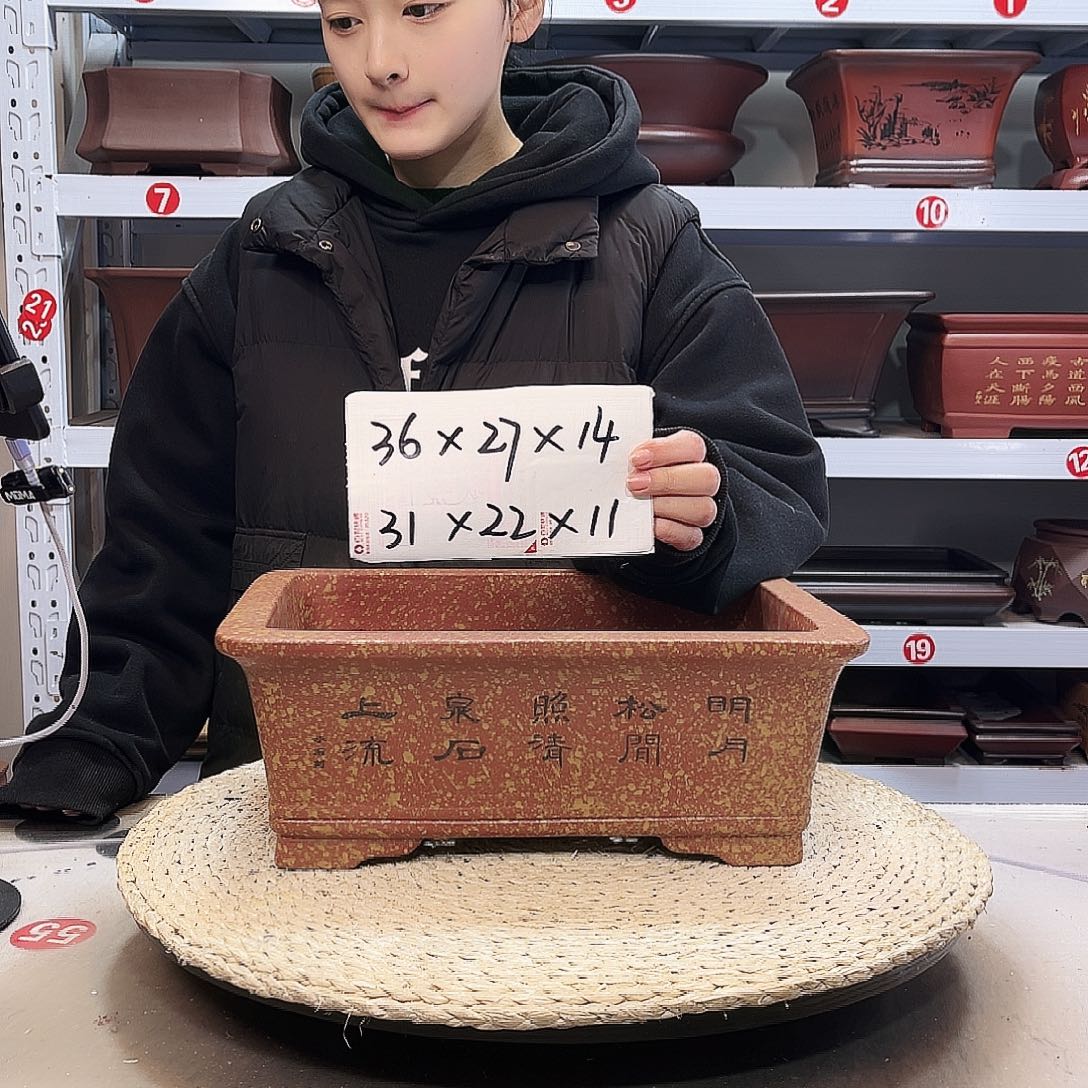 3
2
1
7
10
21
人西瘦古
在下馬道
天斷夕西
涯腸陽風
f
36×27×14
31×22×11
12
MOMA
上泉照松明
流石清間月
19
55